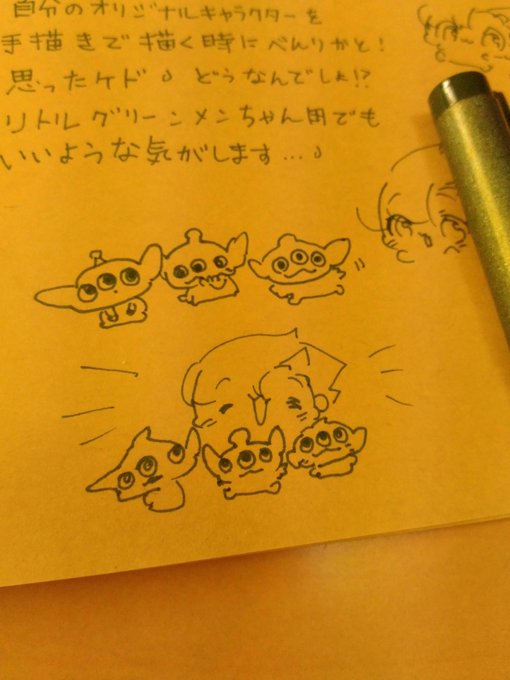 自分のオリジナルキャラクターを
手描きで描く時にべんりかと!
思ったケド♪ どうなんでしょ!?
リトルグリーンメンちゃん用でも
いいような気がします…♪